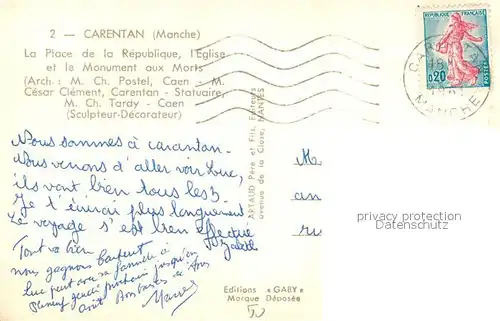 2 — CARENTAN (Manche)
La Place de la République, l'Eglise
et le Monument aux Morts
(Arch : M. Ch. Postel, Caen - M.
César Clément, Carentan - Statuaire,
M. Ch. Tardy - Caen
(Sculpteur-Décorateur)
REPUBLIQUE FRANÇAISE
0,20
POSTES
CARENTAN
MANCHE
Nous sommes à carantan.
Nous venons d'aller voir Luc,
ils vont bien tous les 3.
Je t'écrirai plus longuement
Le voyage s'est bien effectué
Tout va bien
nous gagnons
Luc peut avoir sa famille à
jeudi prochain jusqu'en
août Bon baiser à tous
ARTAUD Père et Fils, Editeurs
avenue de la Close, NANTES
M.
an
ru
privacy protection
Datenschutz
Editions « GABY »
Marque Déposée
50